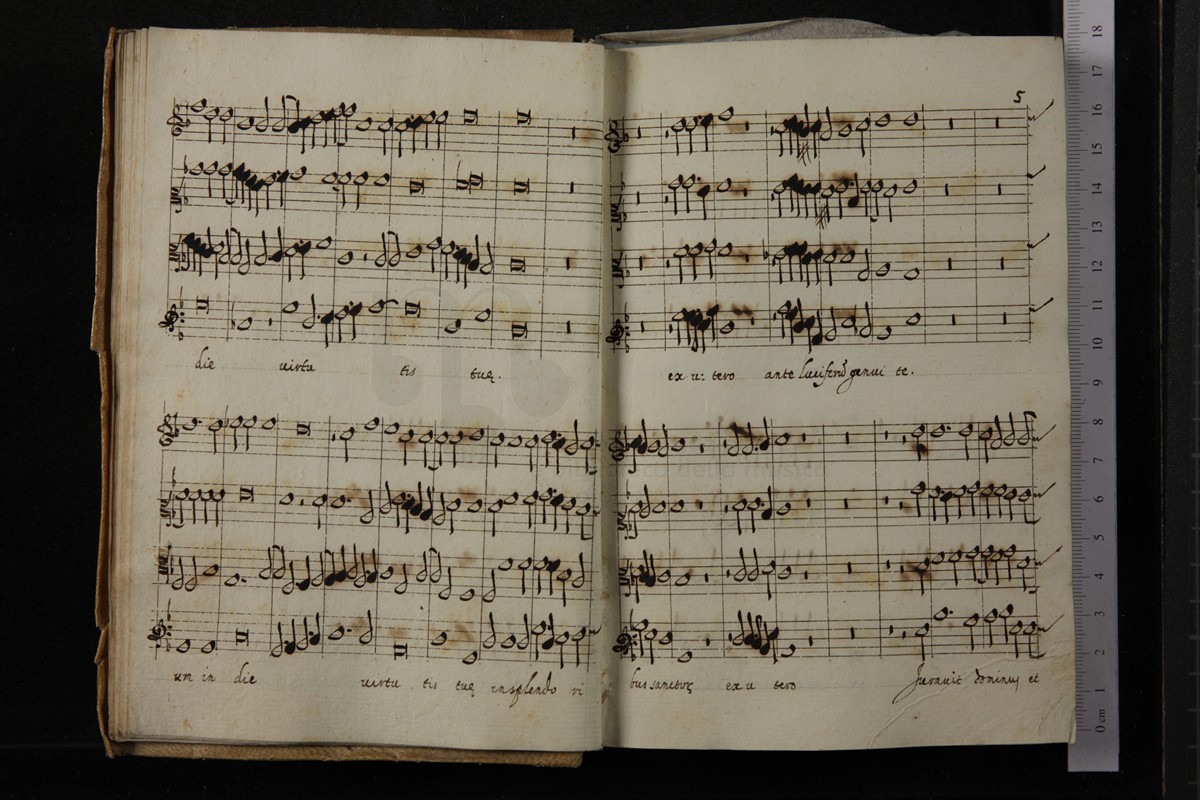 5
die virtu tis tuę.
ex u: tero ante luciferū genui te.
um in die virtu tis tuę in splendo ri
bus sanctoȝ ex u tero Juravit dominus et
18
17
16
15
14
13
12
11
10
9
8
7
6
5
4
3
2
1
0 cm